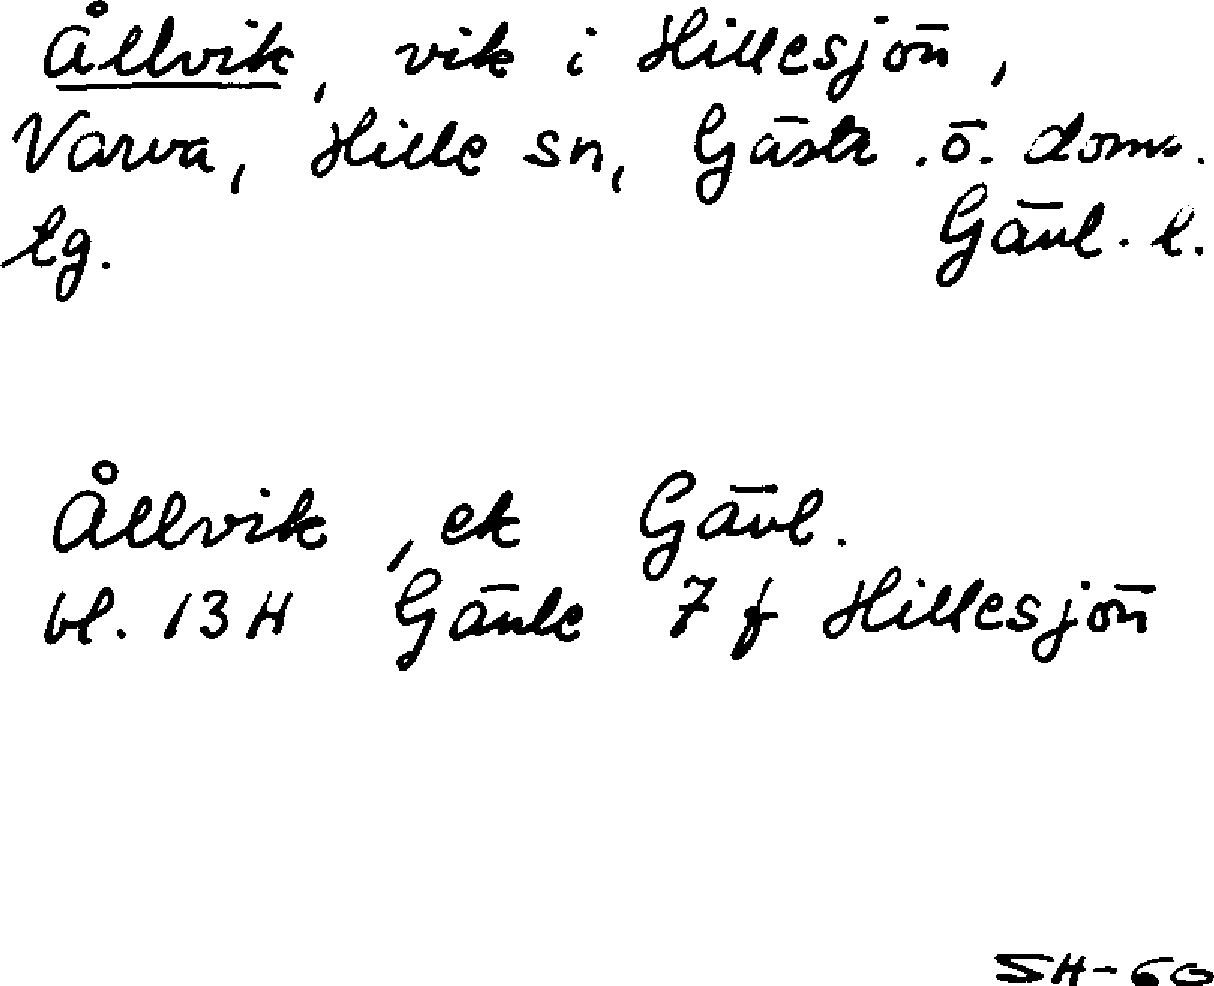 Ållvik, vik i Hillesjön,
Varva, Hille sn, Gästr. ö. doms.
lg. Gävl. l.
Ållvik, ek Gävl.
bl. 13H Gävle 7 f Hillesjön
SH-60